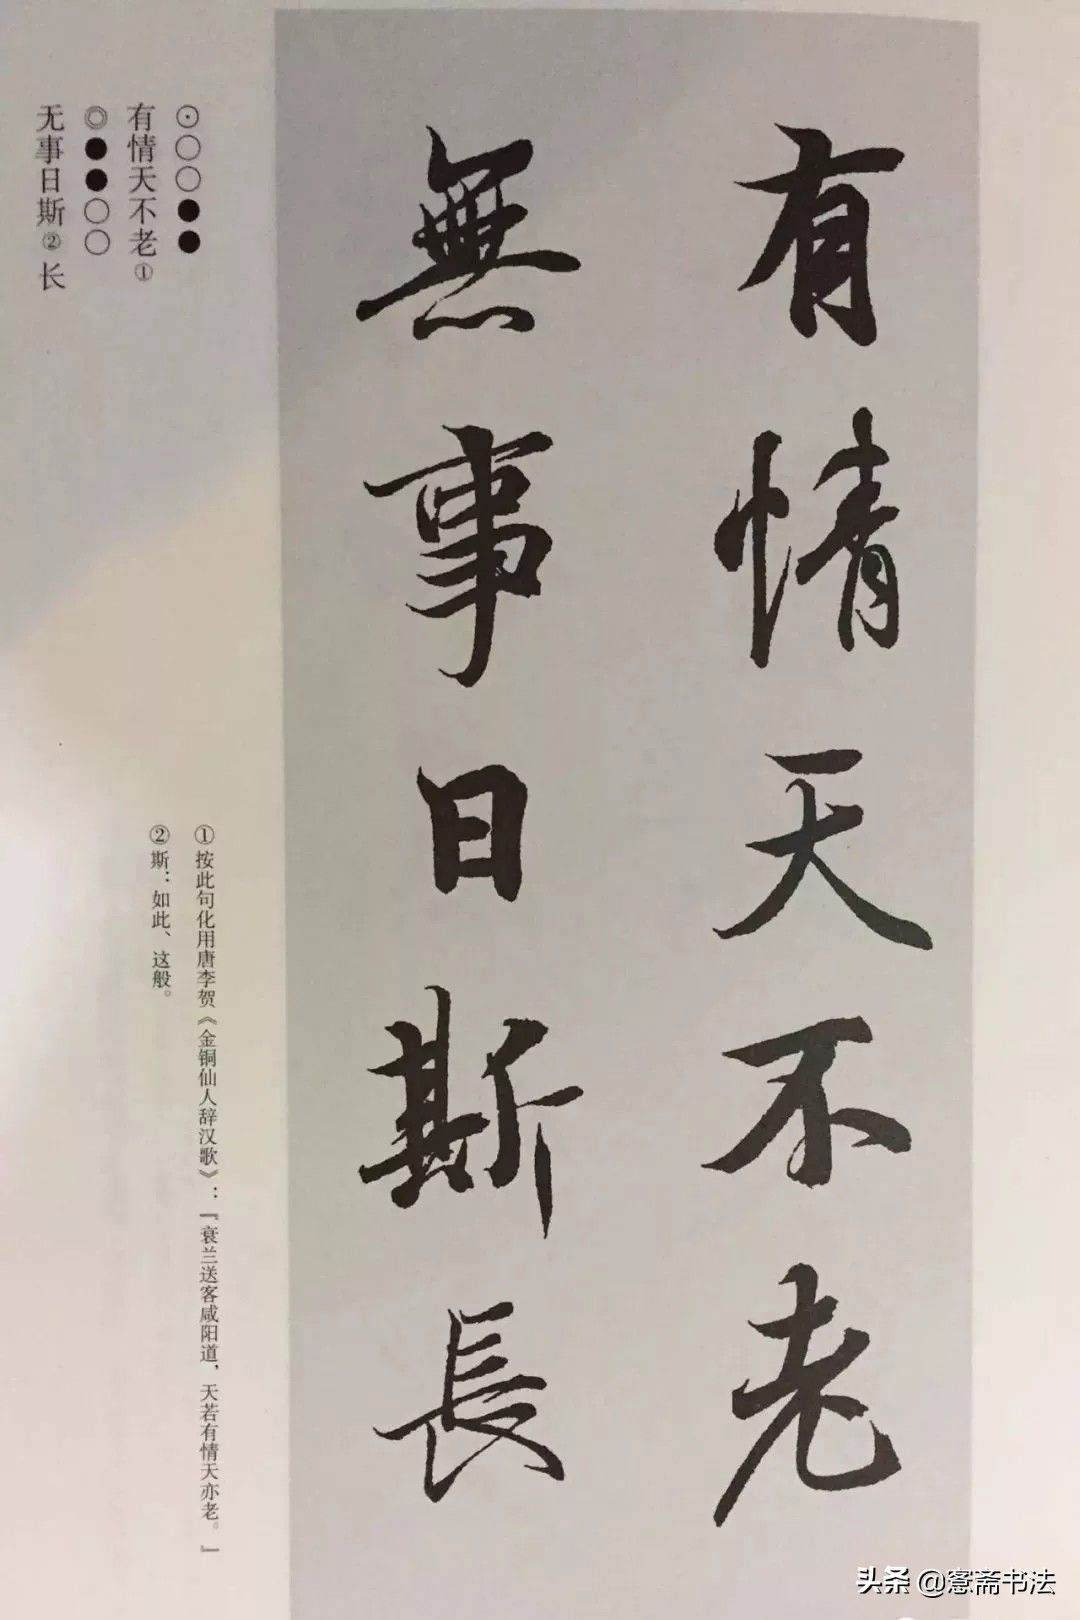 有情天不老
無事日斯長
⊙○○●●
有情天不老①
◎●●○○
无事日斯②长
①按此句化用唐李贺《金铜仙人辞汉歌》：「衰兰送客咸阳道，天若有情天亦老。」
②斯：如此、这般。
头条 @窓斋书法